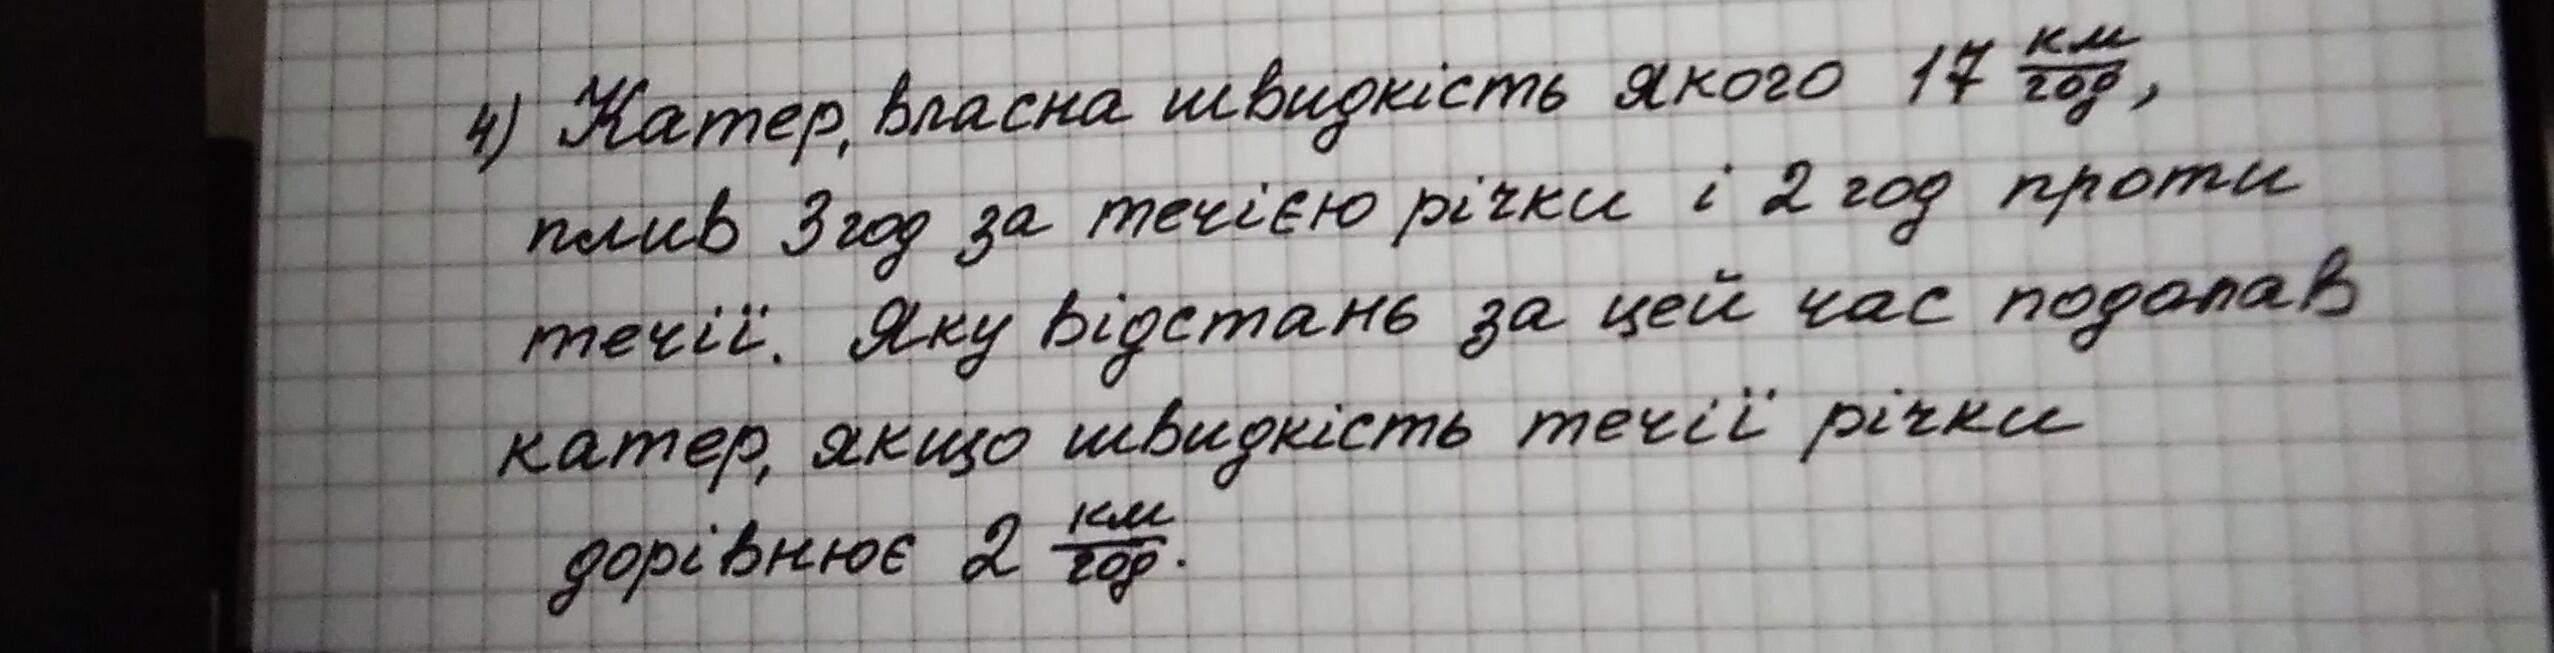 4) Катер, власна швидкість якого 17 км/год,
плив 3 год за течією річки і 2 год проти
течії. Яку відстань за цей час подолав
катер, якщо швидкість течії річки
дорівнює 2 км/год.